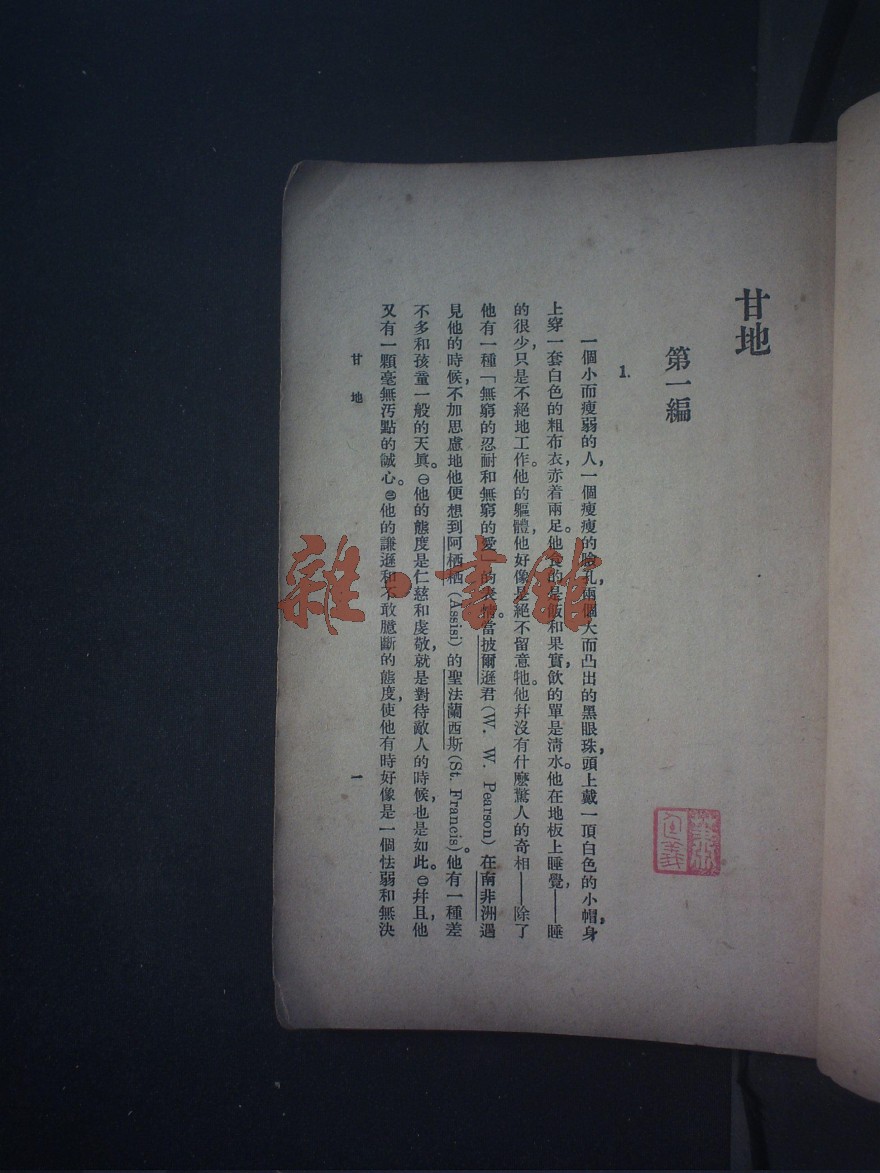 甘地
第一編
1.
一個小而瘦弱的人,一個瘦瘦的臉孔,兩個大而凸出的黑眼珠,頭上戴一頂白色的小帽,身
上穿一套白色的粗布衣,赤着兩足。他食的是飯和果實,飲的單是清水。他在地板上睡覺,——睡
的很少,只是不絕地工作。他的軀體,他好像是絕不留意牠。他幷沒有什麼驚人的奇相——除了
他有一種「無窮的忍耐和無窮的愛」的表情。當披爾遜君(W. W. Pearson)在南非洲遇
見他的時候,不加思慮地他便想到阿栖栖(Assisi)的聖法蘭西斯(St. Francis)。他有一種差
不多和孩童一般的天眞。㊀他的態度是仁慈和虔敬,就是對待敵人的時候,也是如此。㊁幷且,他
又有一顆毫無汚點的誠心。㊂他的謙遜和不敢臆斷的態度,使他有時好像是一個怯弱和無決
甘地
一
雜·書館